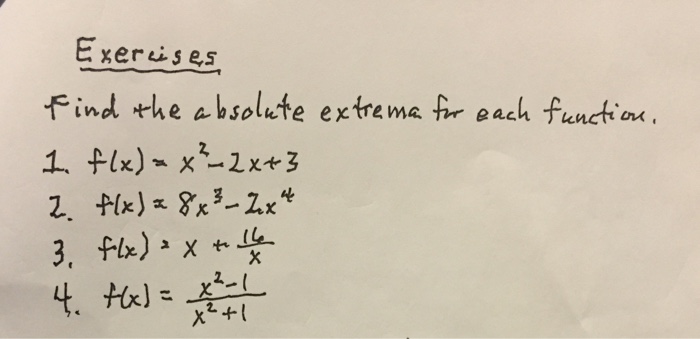 Exercises
Find the absolute extrema for each function.
1. f(x) = x²-2x+3
2. f(x) = 8x³-2x⁴
3. f(x) = x + 16/x
4. f(x) = x²-1/x²+1